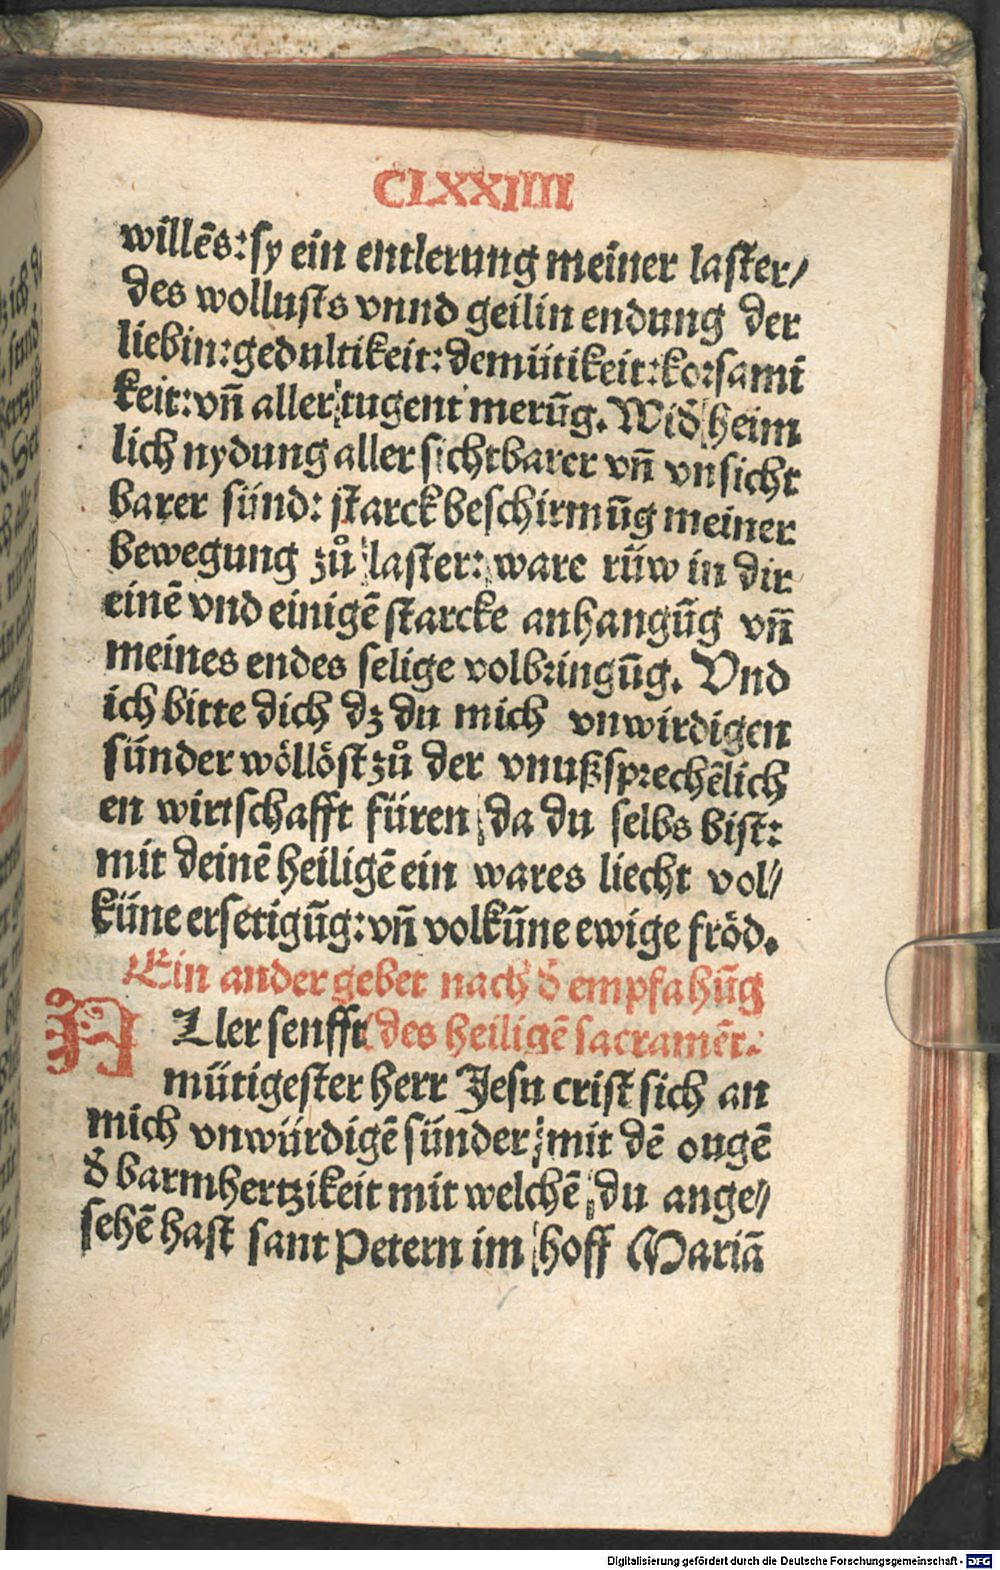 CLXXIIII
willēs: sy ein entlerung meiner laster/
des wollusts vnnd geilin endung der
liebin: gedultikeit: demütikeit: korsami
keit: vñ aller tugent merūg. Wid̄ heim
lich nydung aller sichtbarer vñ vnsicht
barer sünd: starck beschirmūg meiner
bewegung zů laster: ware rüw in dir
einē vnd einigē starcke anhangūg vñ
meines endes selige volbringūg. Vnd
ich bitte dich dz du mich vnwirdigen
sünder wöllöst zů der vnußsprechēlich
en wirtschafft füren da du selbs bist:
mit deinē heiligē ein wares liecht vol/
küne ersetigūg: vñ volkūne ewige fröd.
Ein ander gebet nach d̄ empfahūg
ALler senfft (des heiligē sacramēt.
mütigester herr Jesu crist sich an
mich vnwürdigē sünder mit dē ougē
d̄ barmhertzikeit mit welchē du ange/
sehē hast sant Petern im hoff Mariā
Digitalisierung gefördert durch die Deutsche Forschungsgemeinschaft - DFG